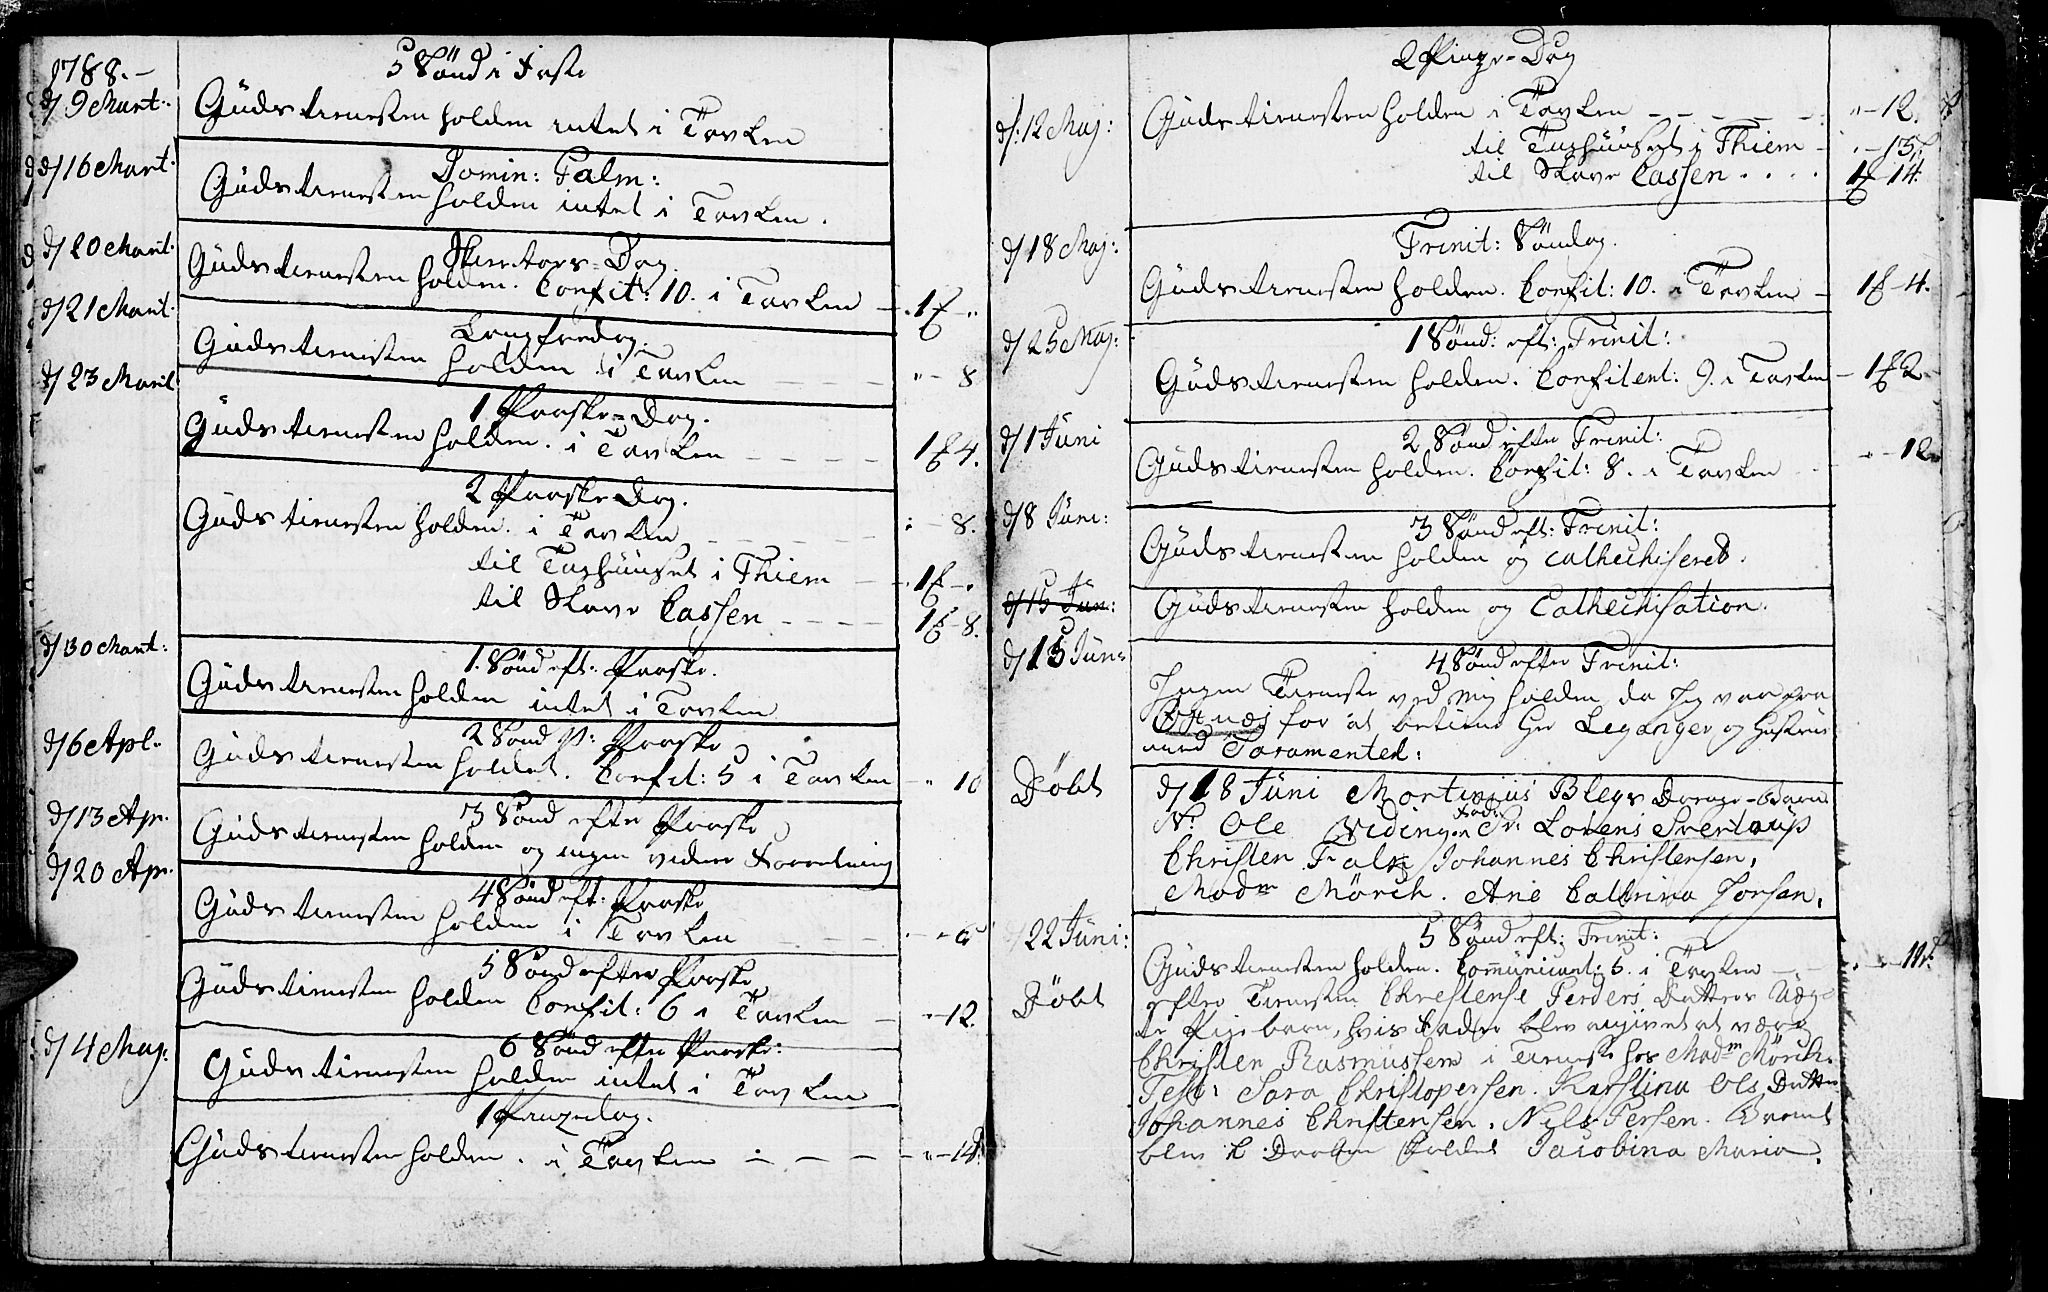 1788.-
5 Sönd i Faste
d/ 9 Mart:
Güds tienesten holden intet i Tavlen
d/16 Mart:
Domin: Palm:
Güds tienesten holden intet i Tavlen.
d/ 20 Mart:
Skiertors=Dag.
Güds tienesten holden. Confit: 10. i Tavlen – 1 – "
d/21 Mart:
Langfredag.
Güds tienesten holden i Tavlen – – – "- 8
d/23 Mart:
1 Paaske=Dag.
Güds tienesten holden. i Tavlen – – – – 1 4.
2 Paaske Dag.
Güds tienesten holden. i Tavlen – – – – : - 8.
til Tughüüset i Thiem – – 1 – .
til Slave Cassen – – – – 1 - 8.
d/30 Mart:
1. Sönd eft: Paaske.
Güds tienesten holden intet i Tavlen
d/6 Apl:
2 Sönd eft: Paaske
Güds tienesten holdet. Confit: 5 i Tavlen – " 10
d/13 Ap.
3 Sönd efter Paaske
Güds tienesten holden og ingen videre Forretning
d/20 Ap.
4 Sönd eft: Paaske
Güds tienesten holden i Tavlen – – –
5 Sönd efter Paaske
Güds tienesten holden Confit: 6 i Tavlen – "-12.
d/ 4 Maj:
6 Sönd efter Paaske:
Güds tienesten holden intet i Tavlen
1 Pingedag.
Güds tienesten holden. i Tavlen – – – – "-14.
2 Pinge=Dag
d/:12 Maj:
Güds tienesten holden i Tavlen – – – – – "- 12.
til Tughüüset i Thiem – " - 15
til Slave Cassen . . . . 1 14.
d/18 Maj:
Trenit: Söndag.
Güds tienesten holden. Confit: 10. i Tavlen – 1 - 4.
d/25 Maj:
1 Sönd: eft: Trinit:
Güds tienesten holden. Confitent: 9. i Tavlen – 1 2
d/1 Jüni
2 Sönd efter Trenit:
Güds tienesten holden. Confit: 8. i Tavlen – "-12
d/8 Jüni:
3 Sönd eft: Trenit:
Güds tienesten holden og cathechiseret.
d/15 Jun:
Güds tienesten holden og Cathechisation.
d/15 Jün:
4 Sönd efter Trenit:
Ingen Tieneste ved mig holden, da Jeg var paa
for at betiene Hr Leganger og Hustrue
med Saramentet:
Döbt
d/18 Jüni Mortinüs Bleys Drenge-Barn
N: Ole Fad: Sr: Lorens
Christen Falk Johannes Christensen,
Madm Mörch. Ane Cathrina Jorsen.
22 Jüni:
5 Sönd eft: Trenit:
Güds tienesten holden. Communicant: 5. i Tavlen – –
Döbt
efter Tienesten Chrestense Peders Datters Uæg-
te Pigebarn, hvis Fader blev angivet at være
Christen Rasmussen i Tieneste hos Madm Mörch.
Test: Sara Christopersen. Karstina Ols Datter
Johannes Christensen. Nils Persen. Barnet
blev i Daaben kaldet Jacobina Maria.